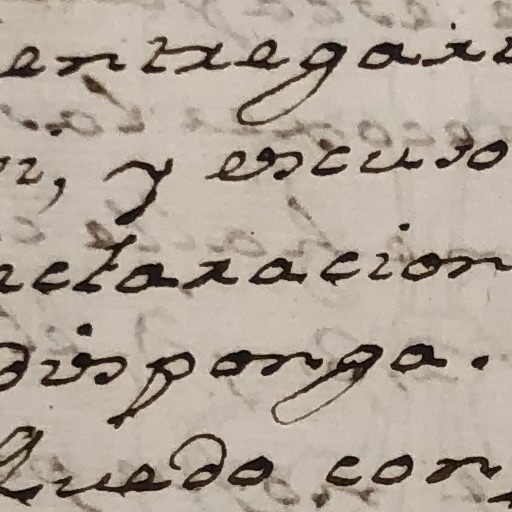 entregair
n, y escuso
eclaracion
disponga.
Quedo con